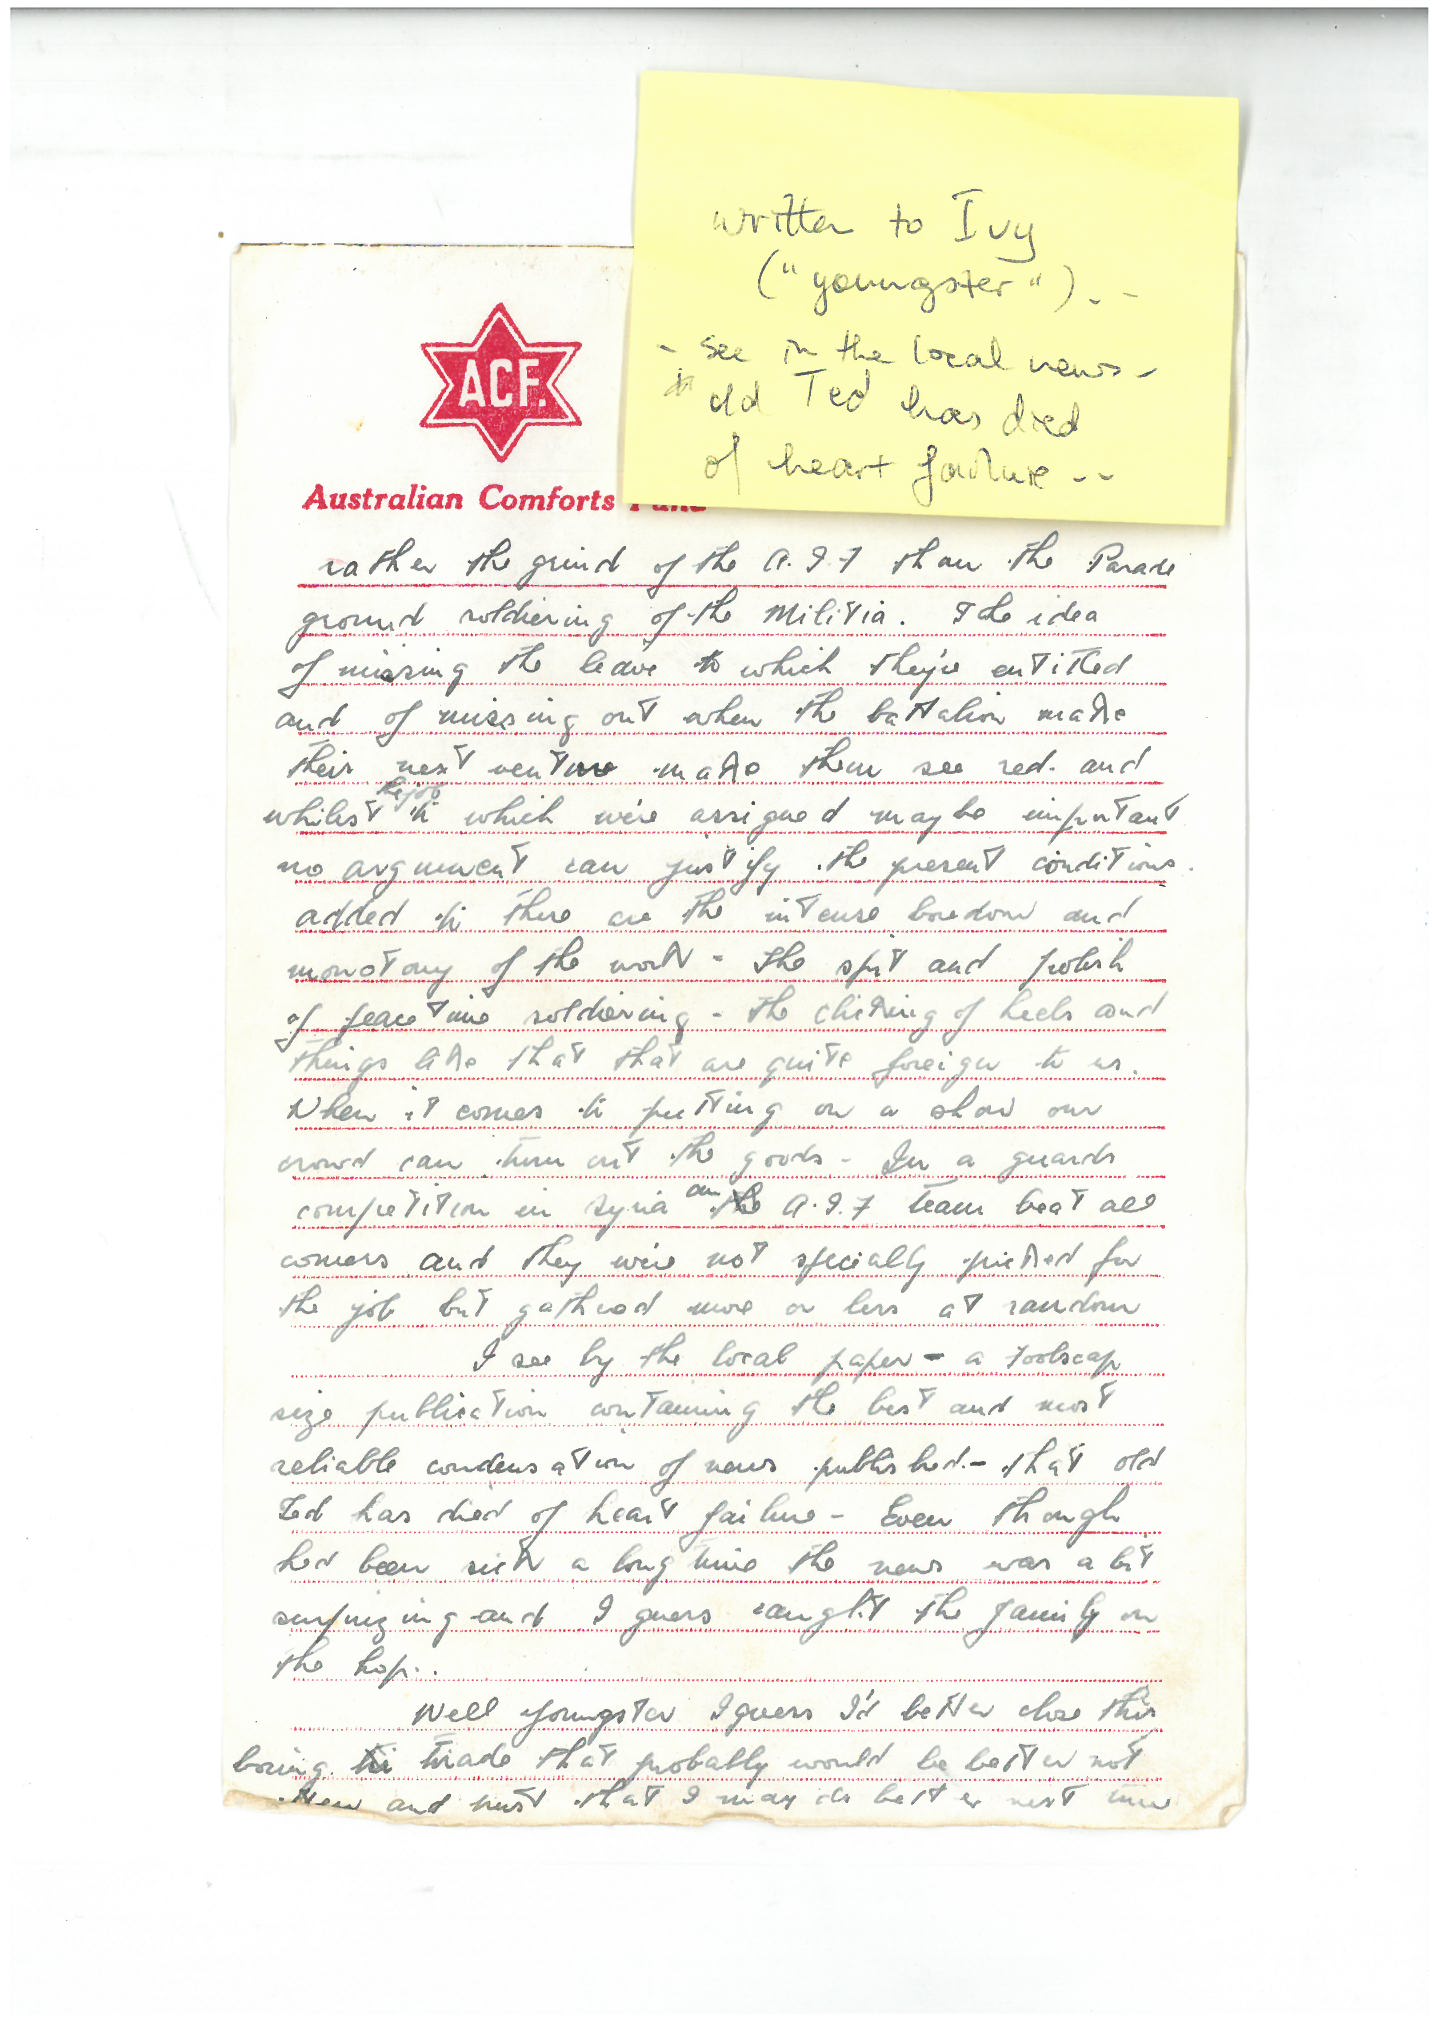 written to Ivy
("youngster") - -
- see in the local news -
old Ted has died
of heart failure - -
ACF.
Australian Comforts Fund
rather the grind of the A.I.F than the Parade
ground soldiering of the Militia. The idea
of missing the leave to which they're entitled
and of missing out when the battalion make
their next venture make them see red. and
the job
whilst to which we're assigned may be important
no argument can justify the present conditions.
added to these are the intense boredom and
monotony of the work - the spit and polish
of peace time soldiering - the clicking of heels and
things like that that are quite foreign to us.
When it comes to putting on a show our
crowd can turn out the goods - In a guards
competition in Syria an the A.I.F team beat all
comers and they we're not specially picked for
the job but gathered more or less at random
I see by the local paper - a foolscap
size publication containing the best and most
reliable condensation of news published - that old
Ted has died of heart failure - Even though
he'd been sick a long time the news was a bit
surprizing and I guess caught the family on
the hop..
Well youngster I guess I'd better close this
boring tirade that probably would be better not
and trust that I may do better next time